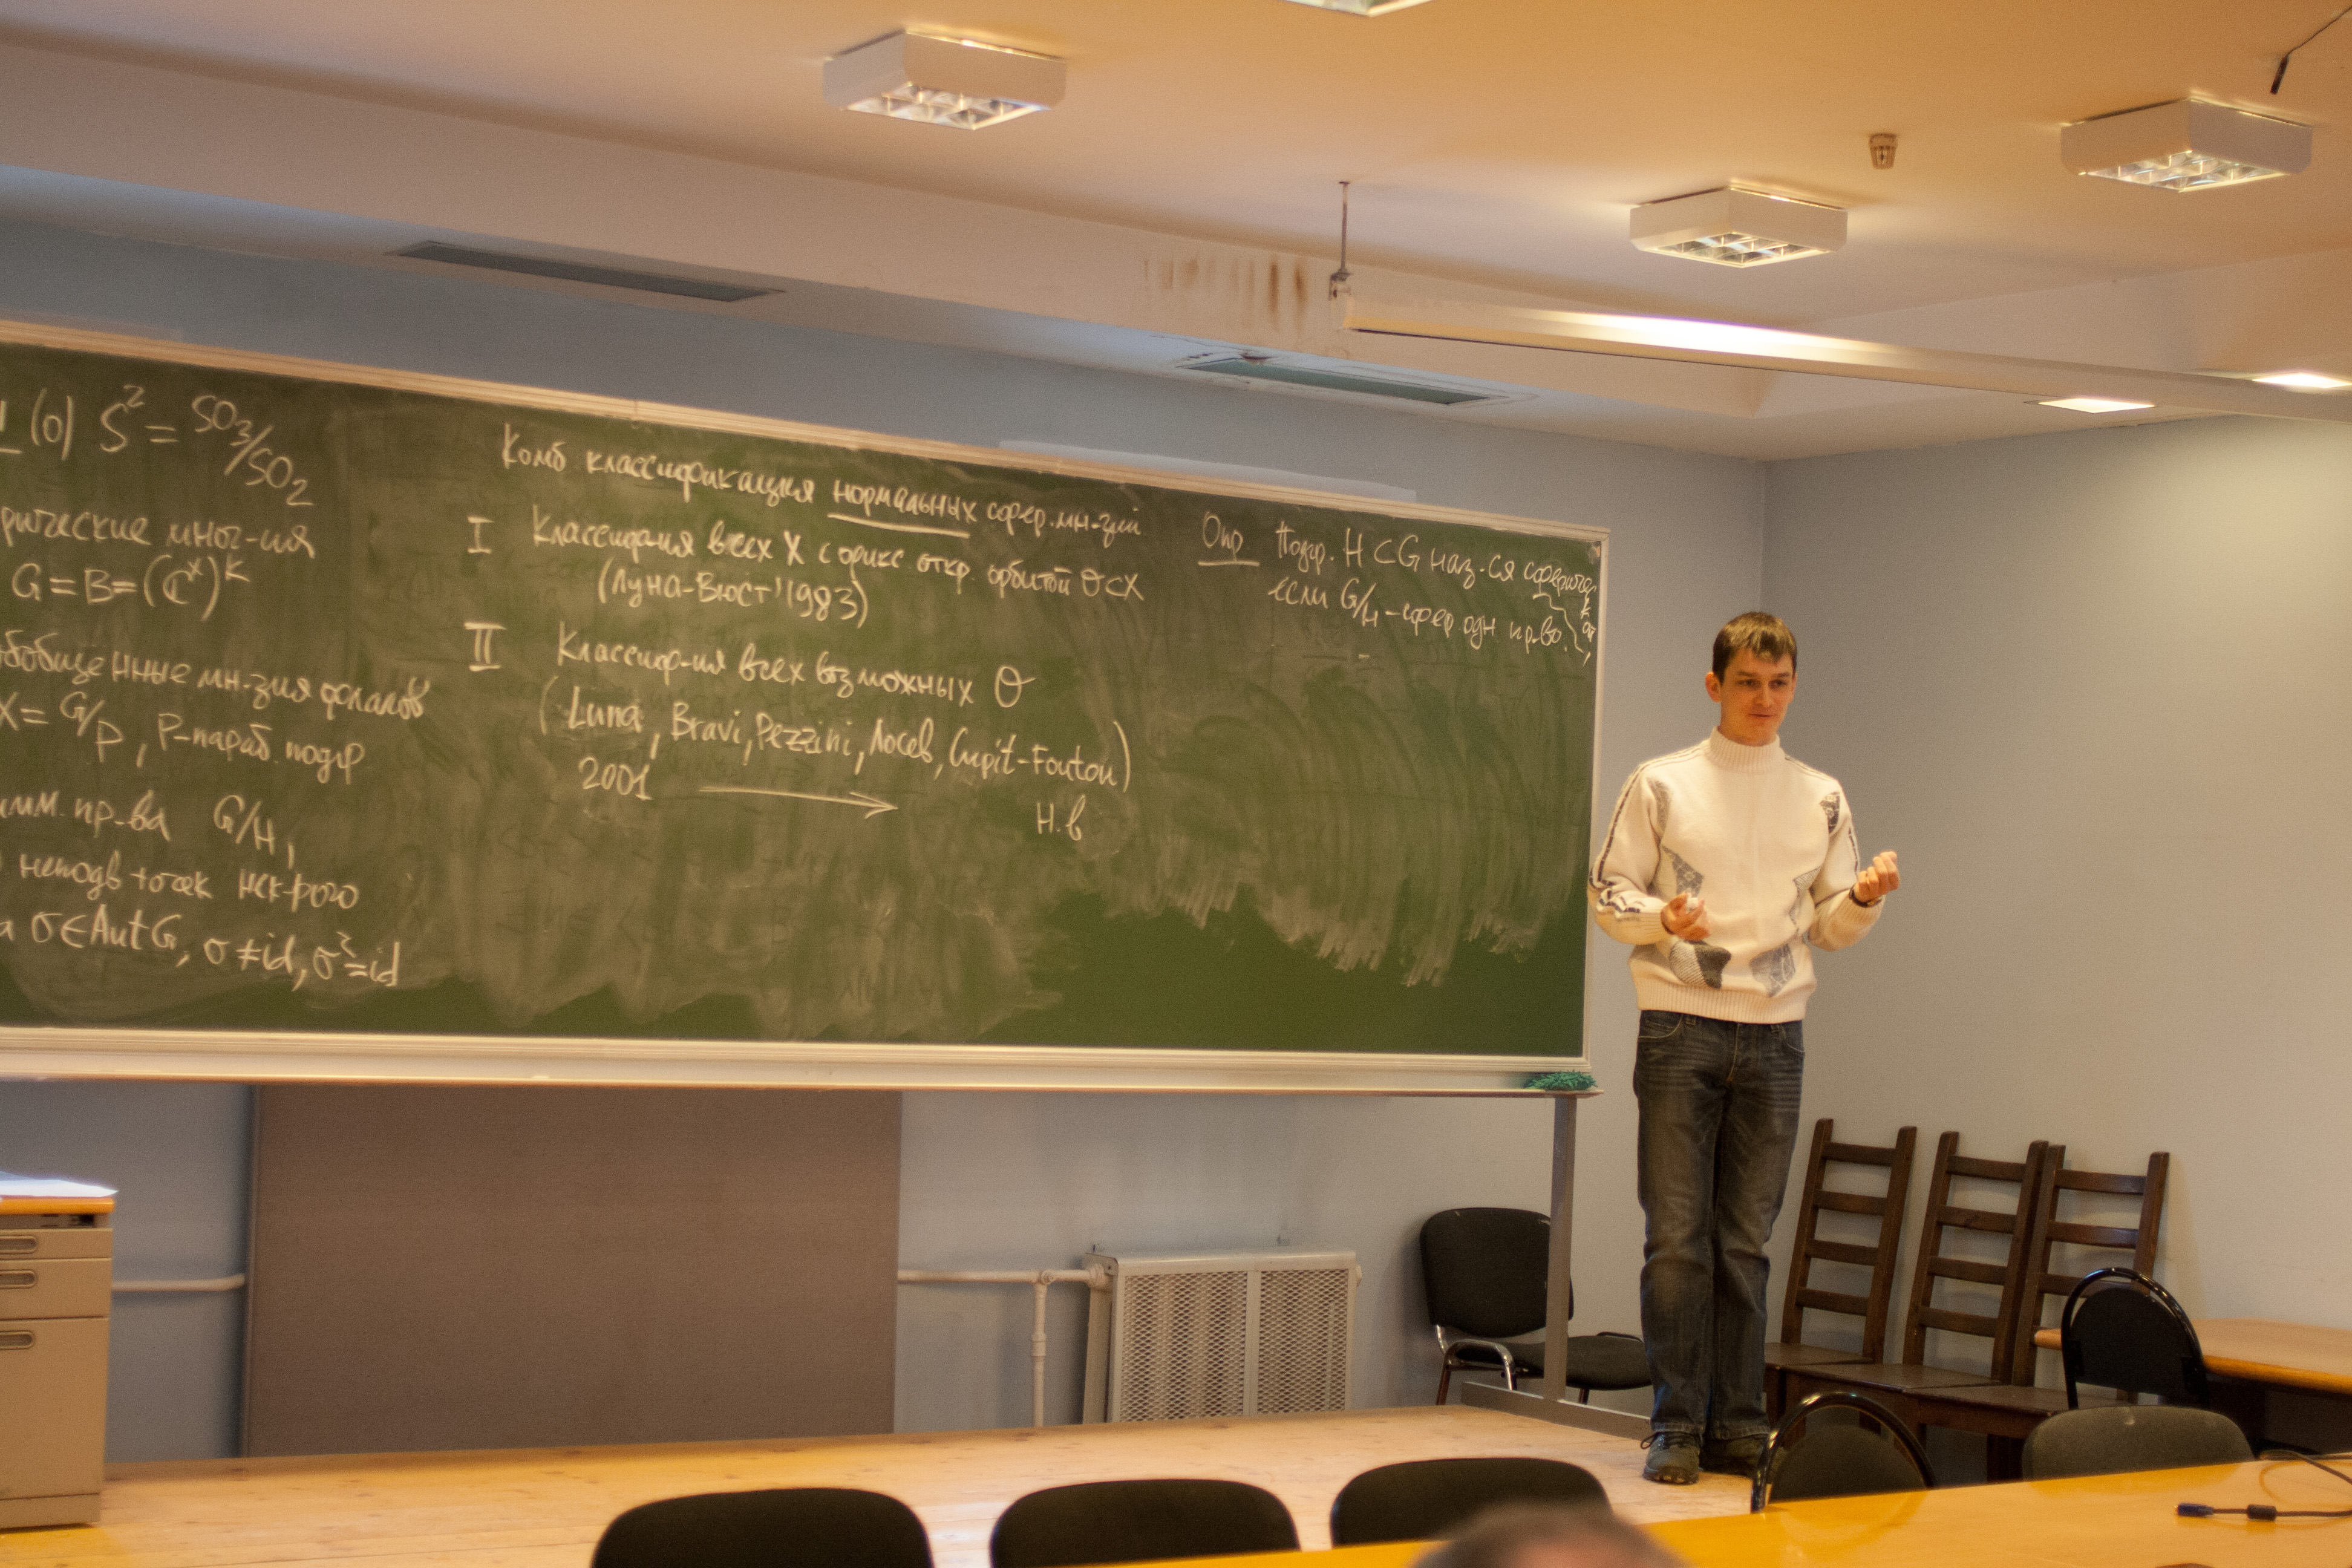 (0) S² = SO₃/SO₂
рические мног-ия
G = B = (ℂ^×)^k
обобщенные мн-зия флагов
X = G/P, P-параб. подгр
имм. пр-ва G/H,
неподв точек нек-рого
σ ∈ Aut G, σ ≠ id, σ² = id
Комб классификация нормальных сфер. мн-зий
I Классиф-ия всех X с фикс откр. орбитой O ⊂ X
(Луна-Вюст' 1983)
II Классиф-ия всех возможных O
(Luna, Bravi, Pezzini, Лосев, Cupit-Foutou)
2001 → н.в
Опр Подгр. H ⊂ G наз-ся сферической,
если G/H - сфер. одн. пр-во.